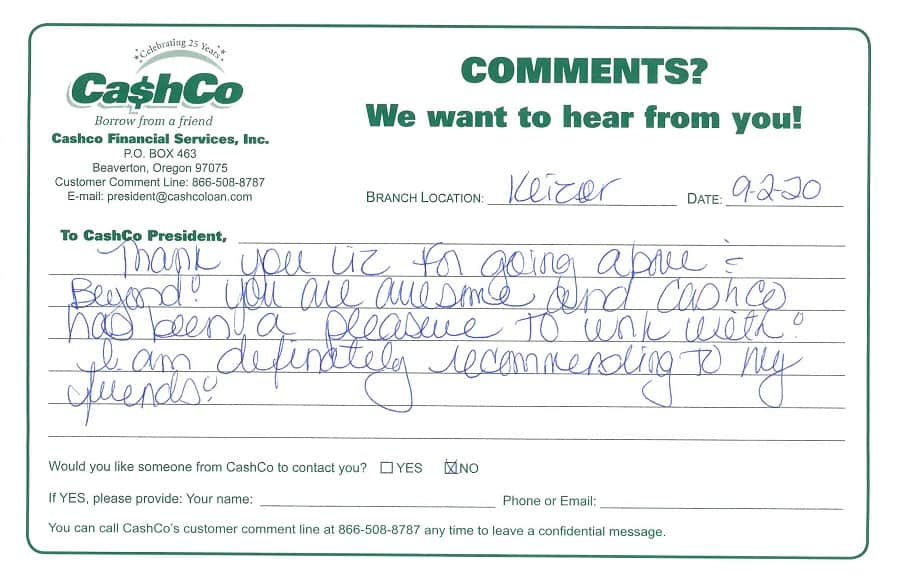 *Celebrating 25 Years*
Ca$hCo
Borrow from a friend
Cashco Financial Services, Inc.
P.O. BOX 463
Beaverton, Oregon 97075
Customer Comment Line: 866-508-8787
E-mail: president@cashcoloan.com
COMMENTS?
We want to hear from you!
BRANCH LOCATION: Keizer DATE: 9-2-20
To CashCo President,
Thank you Liz for going above &
Beyond! You are awesome and Cashco
had been a pleasure to work with!
I am definately recommending to my
friends!
Would you like someone from CashCo to contact you? ☐ YES ☒ NO
If YES, please provide: Your name: Phone or Email:
You can call CashCo's customer comment line at 866-508-8787 any time to leave a confidential message.